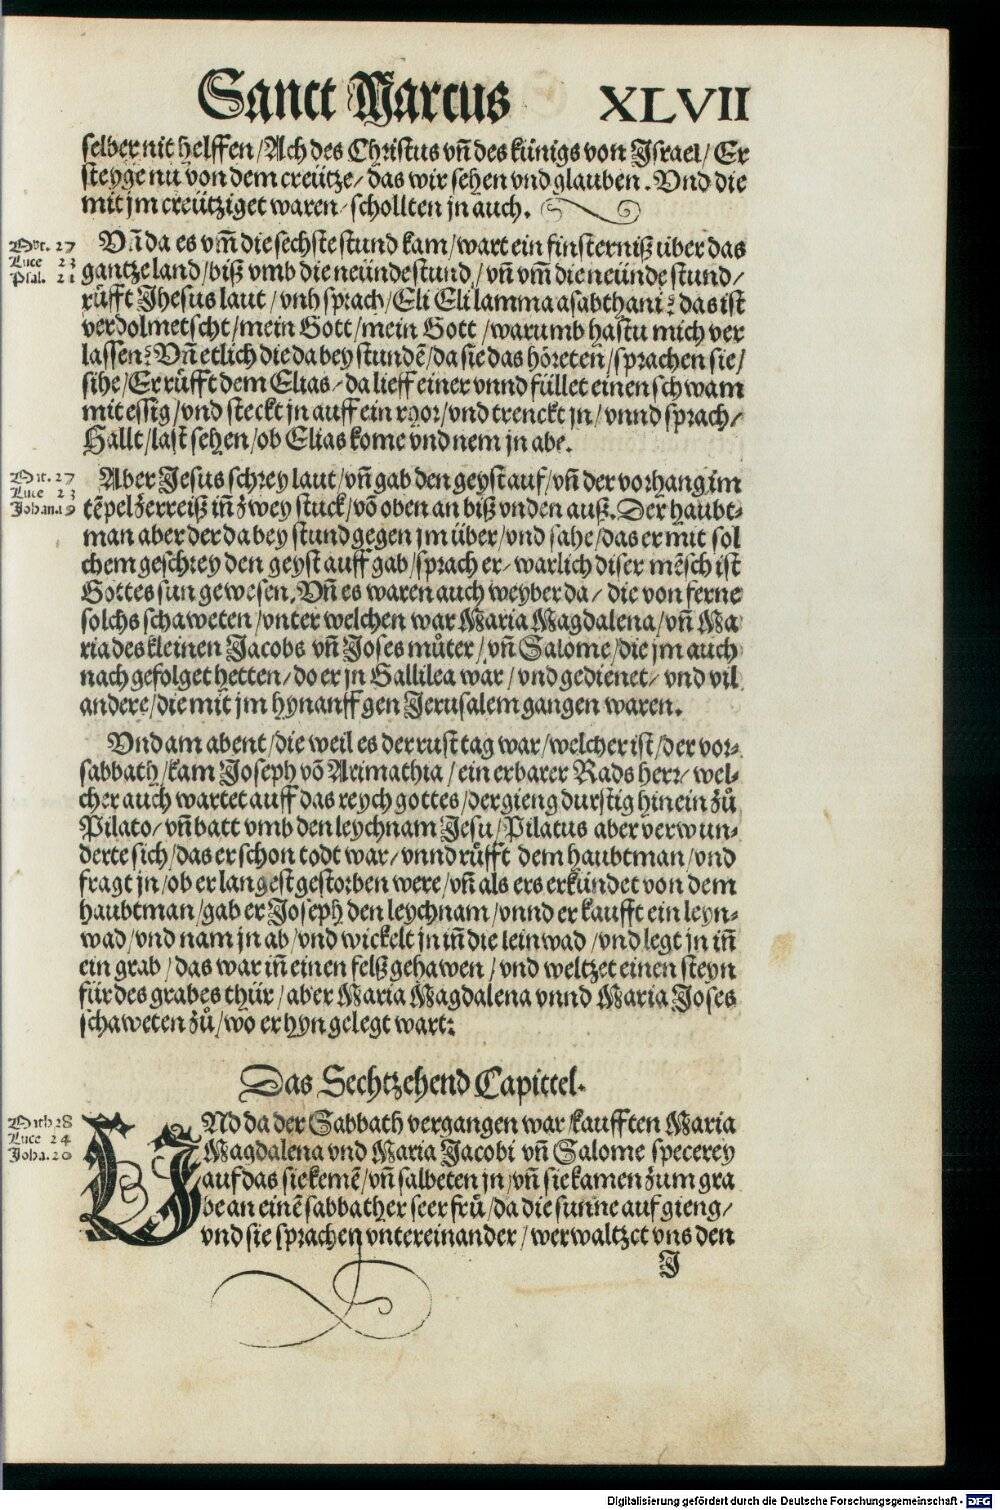 Sanct Marcus XLVII
selber nit helffen/Ach des Christus vñ des künigs von Israel/Er
steyge nu von dem creütze/das wir sehen vnd glauben. Vnd die
mit jm creütziget waren/schollten jn auch.
Mat. 27
Luce 23
Psal. 21
Vñ da es vm̃ die sechste stund kam/wart ein finsterniß über das
gantze land/biß vmb die neünde stund/vñ vm̃ die neünde stund/
rüfft Jhesus laut/vnh sprach/Eli Eli lamma asabthani? das ist
verdolmetscht/mein Gott/mein Gott/warumb hastu mich ver
lassen? Vñ etlich die da bey stundẽ/da sie das höreten/sprachen sie/
sihe/Er rüfft dem Elias/da lieff einer vnnd füllet einen schwam
mit essig/vnd steckt jn auff ein rhor/vnd trenckt jn/vnnd sprach/
Hallt/last sehen/ob Elias kome vnd nem jn abe.
Mat. 27
Luce 23
Johan. 19
Aber Jesus schrey laut/vñ gab den geyst auf/vñ der vorhang im
tẽpel zerreiß iñ zwey stuck/võ oben an biß vnden auß. Der haubt-
man aber der da bey stund gegen jm über/vnd sahe/das er mit sol
chem geschrey den geyst auff gab/sprach er/warlich diser mẽsch ist
Gottes sun gewesen. Vñ es waren auch weyber da/die von ferne
solchs schaweten/vnter welchen war Maria Magdalena/vñ Ma
ria des kleinen Jacobs vñ Joses můter/vñ Salome/die jm auch
nach gefolget hetten/do er jn Gallilea war/vnd gedienet/vnd vil
andere/die mit jm hynauff gen Jerusalem gangen waren.
Vnd am abent/die weil es der rust tag war/welcher ist/der vor-
sabbath/kam Joseph võ Arimathia/ein erbarer Rads herr/wel-
cher auch wartet auff das reych gottes/der gieng durstig hinein zů
Pilato/vñ batt vmb den leychnam Jesu/Pilatus aber verwun-
derte sich/das er schon todt war/vnnd rüfft dem haubtman/vnd
fragt jn/ob er langest gestorben were/vñ als ers erkündet von dem
haubtman/gab er Joseph den leychnam/vnnd er kaufft ein leyn-
wad/vnd nam jn ab/vnd wickelt jn iñ die leinwad/vnd legt jn iñ
ein grab/das war iñ einen felß gehawen/vnd weltzet einen steyn
für des grabes thür/aber Maria Magdalena vnnd Maria Joses
schaweten zů/wo er hyn gelegt wart:
Das Sechtzehend Capittel.
Math 28
Luce 24
Joha. 20
VNd da der Sabbath vergangen war/kaufften Maria
Magdalena vnd Maria Jacobi vñ Salome specerey
auf das sie kemẽ/vñ salbeten jn/vñ sie kamen zum gra
be an einẽ sabbather seer frü/da die sunne auf gieng/
vnd sie sprachen vntereinander/wer waltzet vns den
J
Digitalisierung gefördert durch die Deutsche Forschungsgemeinschaft - DFG